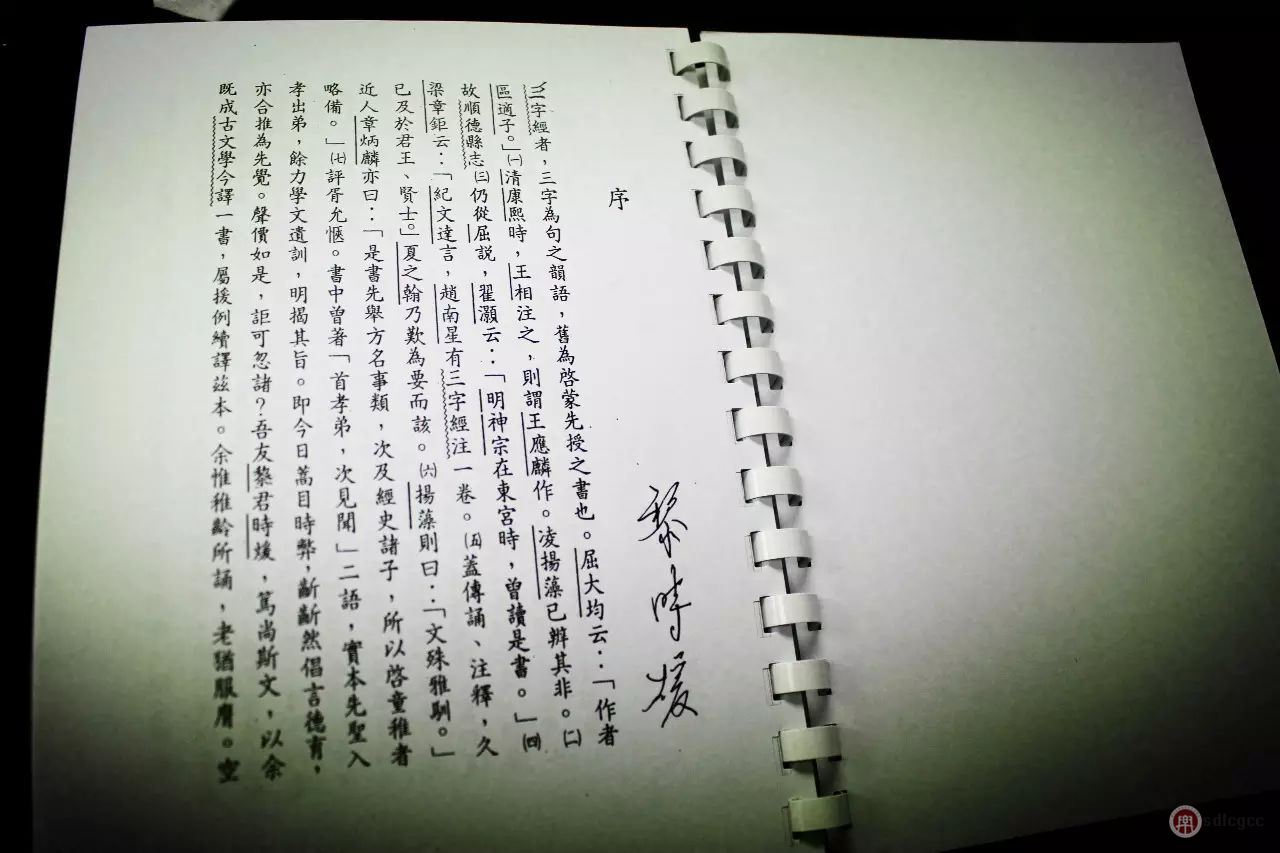 序
黎時煖
三字經者,三字為句之韻語,舊為啓蒙先授之書也。屈大均云:「作者
區適子。」㈠清康熙時,王相注之,則謂王應麟作。凌揚藻已辦其非。㈡
故順德縣志㈢仍從屈説,翟灝云:「明神宗在東宮時,曾讀是書。」㈣
梁章鉅云:「紀文達言,趙南星有三字經注一卷。㈤蓋傳誦、注釋,久
已及於君王、賢士。」夏之翰乃歎為要而該。㈥揚藻則曰:「文殊雅馴。」
近人章炳麟亦曰:「是書先舉方名事類,次及經史諸子,所以啓童稚者
略備。」㈦評胥允愜。書中曾著「首孝弟,次見聞」二語,實本先聖入
孝出弟,餘力學文遺訓,明揭其旨。即今日蒿目時弊,齗齗然倡言德育,
亦合推為先覺。聲價如是,詎可忽諸?吾友黎君時煖,篤尚斯文,以余
既成古文學今譯一書,屬援例續譯茲本。余惟稚齡所誦,老猶服膺。空
sdlcgcc